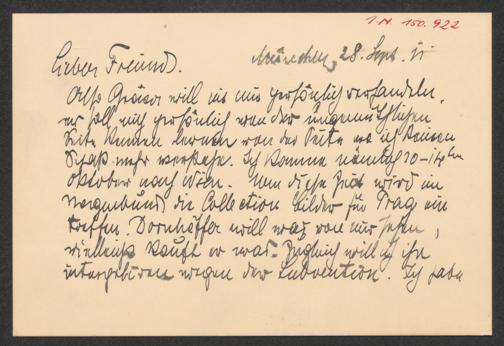 1 N. 150.922
München, 28. Sept. 11
Lieber Freund.
Also Gräser will bis mit persönlich verhandeln,
er soll mich persönlich von der ungemütlichen
Seite kennen lernen von der Seite wo ich keinen
Spaß mehr verstehe. Ich komme nämlich 10-14ten
Oktober nach Wien. Um diese Zeit wird im
Hagenbund die Collection bilder für Prag ein
treffen. Dornhöffer will was von mir sehen,
vielleicht kauft er was. Zugleich will ich ihn
wegen der Subvention. Ich habe